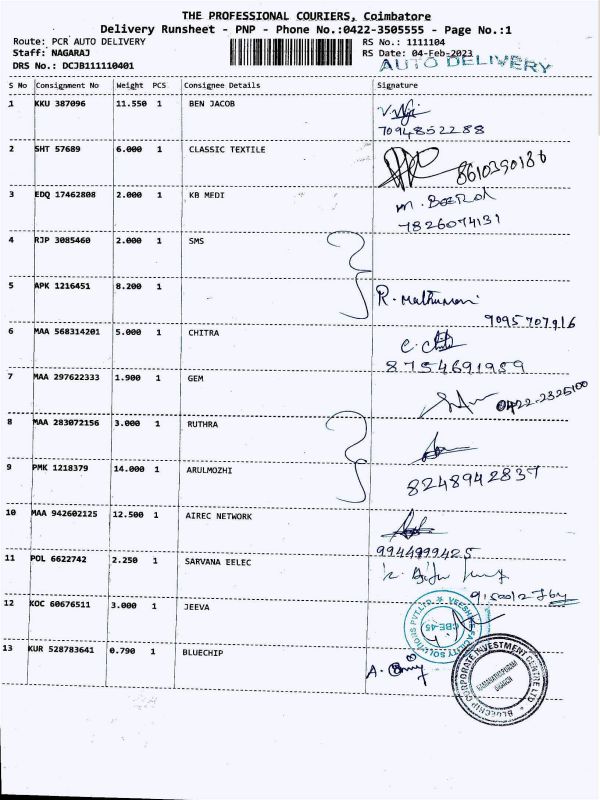 THE PROFESSIONAL COURIERS, Coimbatore
Delivery Runsheet - PNP - Phone No.:0422-3505555 - Page No.:1
Route: PCR AUTO DELIVERY RS No.: 1111104
Staff: NAGARAJ RS Date: 04-Feb-2023
DRS No.: DCJB111110401 AUTO DELIVERY
S No Consignment No Weight PCS Consignee Details Signature
1 KKU 387096 11.550 1 BEN JACOB
7094852288
2 SHT 57689 6.000 1 CLASSIC TEXTILE
8610390186
3 EDQ 17462808 2.000 1 KB MEDI
7826074131
4 RJP 3085460 2.000 1 SMS
5 APK 1216451 8.200 1 R. Mathumani
9095707916
6 MAA 568314201 5.000 1 CHITRA
8754691959
7 MAA 297622333 1.900 1 GEM
0422-2325100
8 MAA 283072156 3.000 1 RUTHRA
9 PMK 1218379 14.000 1 ARULMOZHI 8248942837
10 MAA 942602125 12.500 1 AIREC NETWORK
9944999425
11 POL 6622742 2.250 1 SARVANA EELEC
12 KOC 60676511 3.000 1 JEEVA
CBE-45
13 KUR 528783641 0.790 1 BLUECHIP
BLUECHIP CORPORATE INVESTMENT CENTRE LTD
RAMANATHAPURAM
BRANCH